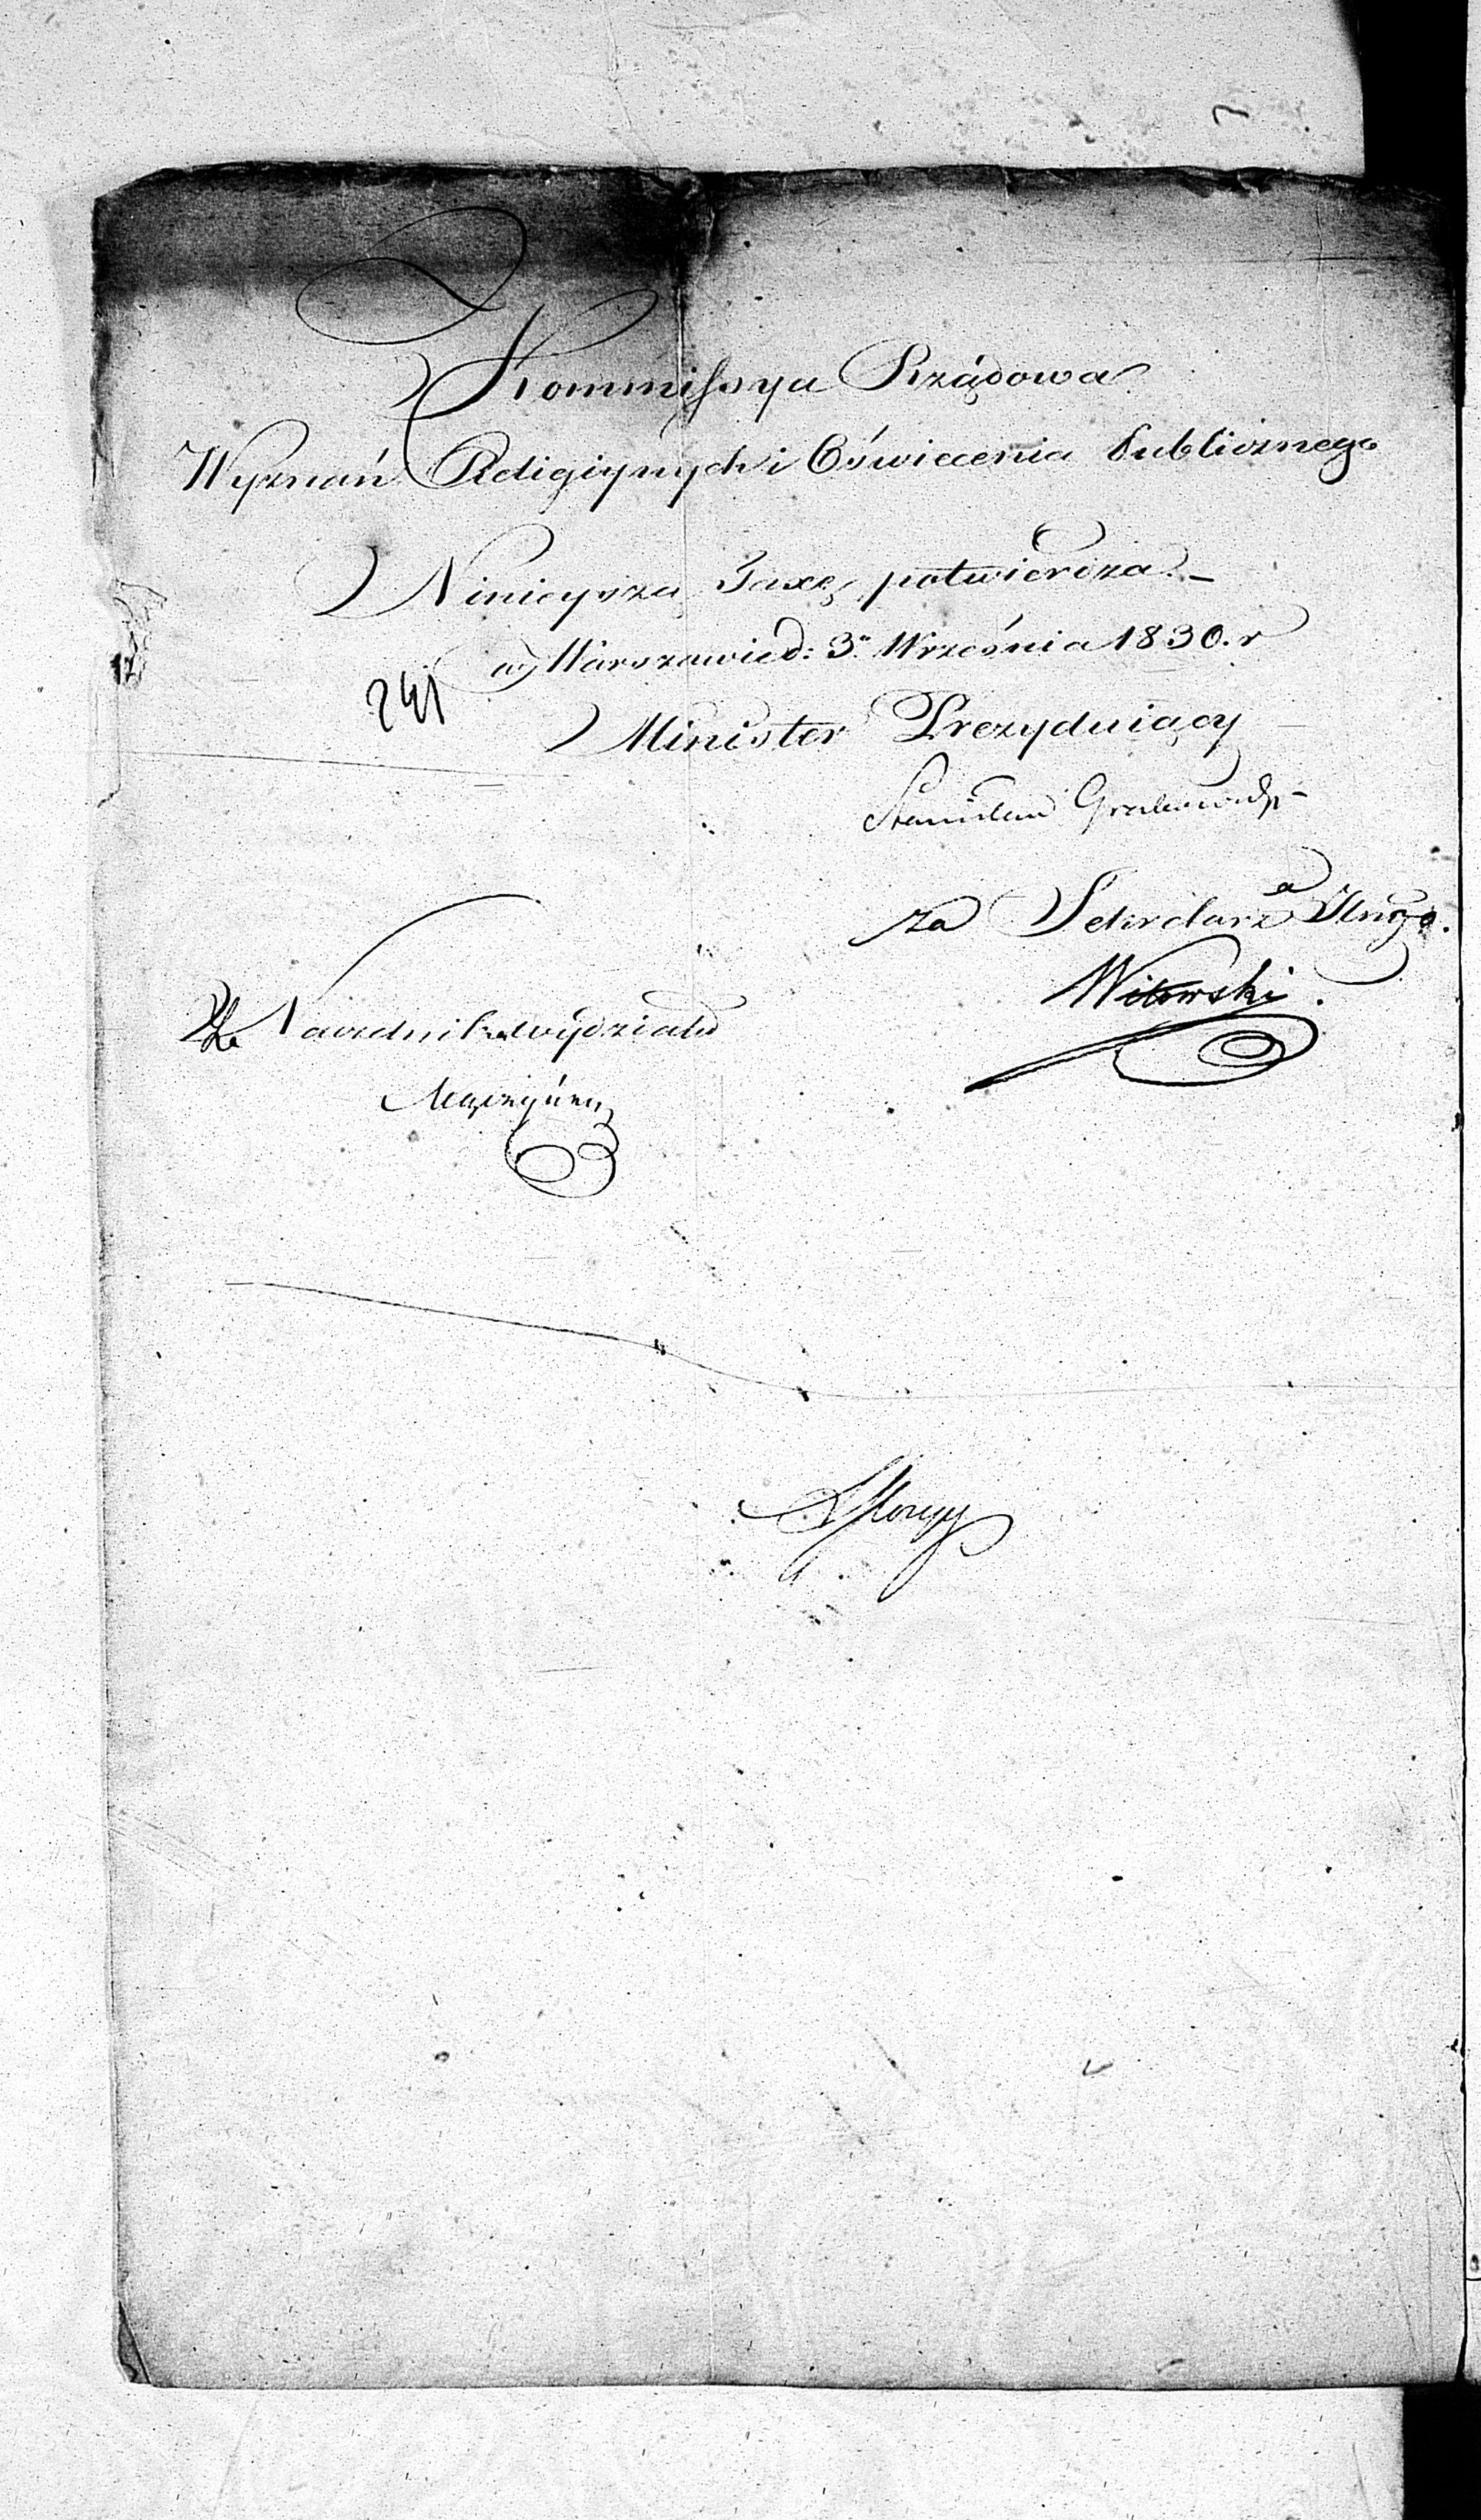 Kommissya Rządowa
Wyznań Religiynych i Oświecenia Publicznego
Ninieyszą Taxę potwierdza.–
w Warszawie d: 3. Września 1830. r
241
Minister Prezyduiący
Stanisław Grabowski
za Sekretarza Jlnego.
Witowski.
Naczelnika wydziału